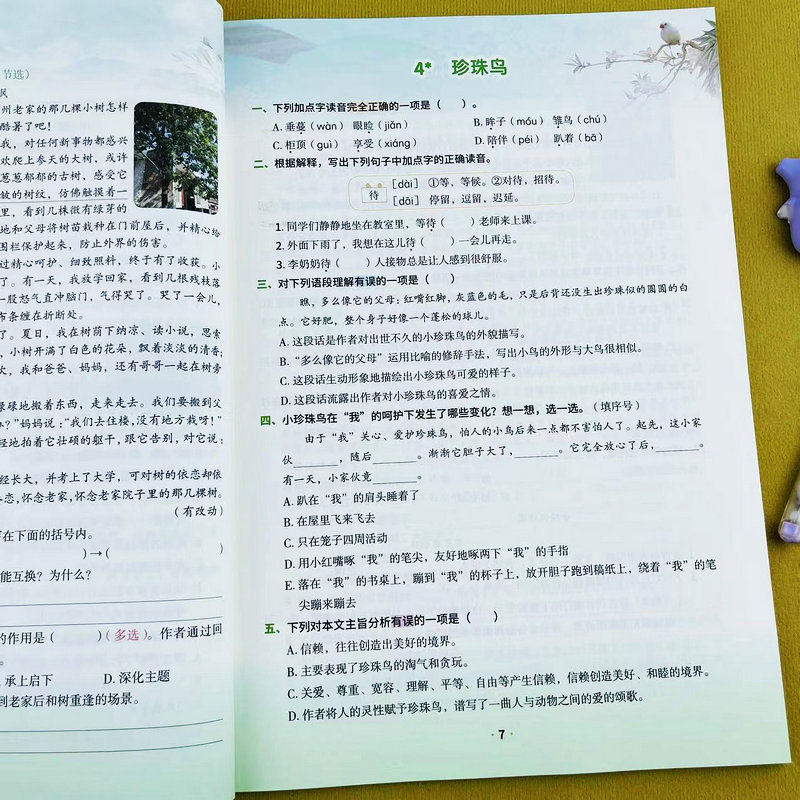 节选）
风
州老家的那几棵小树怎样
酷暑了吧！
我，对任何新事物都感兴
欢爬上参天的大树，或许
葱葱郁郁的古树，感受它
皱的树纹，仿佛触摸着一
里，看到几株微有绿芽的
地和父母将树苗栽种在门前屋后，并精心给
围栏保护起来，防止外界的伤害。
过精心呵护、细致照料，终于有了收获。小
了。有一天，我放学回家，看到几根残枝落
一股怒气直冲脑门，气得哭了。哭了一会儿，
布条缠在折断处。
了。夏日，我在树荫下纳凉、读小说，思索
，小树开满了白色的花朵，飘着淡淡的清香；
欠，我和爸爸、妈妈，还有哥哥一起在树旁
碌碌地搬着东西，走来走去。我们要搬到父
？”妈妈说：“我们去住楼，没有地方栽呀！”
轻地拍着它壮硕的躯干，跟它告别，对它说：
经长大，并考上了大学，可对树的依恋却依
恋，怀念老家，怀念老家院子里的那几棵树。
（有改动）
在下面的括号内。
）→（ ）
能互换？为什么？
的作用是（ ）（多选）。作者通过回
。
承上启下 D. 深化主题
到老家后和树重逢的场景。
4* 珍珠鸟
一、下列加点字读音完全正确的一项是（ ）。
A. 垂蔓（wàn） 眼睑（jiǎn） B. 眸子（móu） 雏鸟（chú）
C. 柜顶（guì） 享受（xiáng） D. 陪伴（péi） 趴着（bā）
二、根据解释，写出下列句子中加点字的正确读音。
待 [dài] ①等，等候。②对待，招待。
[dāi] 停留，逗留，迟延。
1. 同学们静静地坐在教室里，等待（ ）老师来上课。
2. 外面下雨了，我想在这儿待（ ）一会儿再走。
3. 李奶奶待（ ）人接物总是让人感到很舒服。
三、对下列语段理解有误的一项是（ ）
瞧，多么像它的父母：红嘴红脚，灰蓝色的毛，只是后背还没生出珍珠似的圆圆的白
点。它好肥，整个身子好像一个蓬松的球儿。
A. 这段话是作者对出世不久的小珍珠鸟的外貌描写。
B. “多么像它的父母”运用比喻的修辞手法，写出小鸟的外形与大鸟很相似。
C. 这段话生动形象地描绘出小珍珠鸟可爱的样子。
D. 这段话流露出作者对小珍珠鸟的喜爱之情。
四、小珍珠鸟在“我”的呵护下发生了哪些变化？想一想，选一选。（填序号）
由于“我”关心、爱护珍珠鸟，怕人的小鸟后来一点都不害怕人了。起先，这小家
伙________，随后________。渐渐它胆子大了，________。它完全放心了后，________。
有一天，小家伙竟________。
A. 趴在“我”的肩头睡着了
B. 在屋里飞来飞去
C. 只在笼子四周活动
D. 用小红嘴啄“我”的笔尖，友好地啄两下“我”的手指
E. 落在“我”的书桌上，蹦到“我”的杯子上，放开胆子跑到稿纸上，绕着“我”的笔
尖蹦来蹦去
五、下列对本文主旨分析有误的一项是（ ）
A. 信赖，往往创造出美好的境界。
B. 主要表现了珍珠鸟的淘气和贪玩。
C. 关爱、尊重、宽容、理解、平等、自由等产生信赖，信赖创造美好、和睦的境界。
D. 作者将人的灵性赋予珍珠鸟，谱写了一曲人与动物之间的爱的颂歌。
7